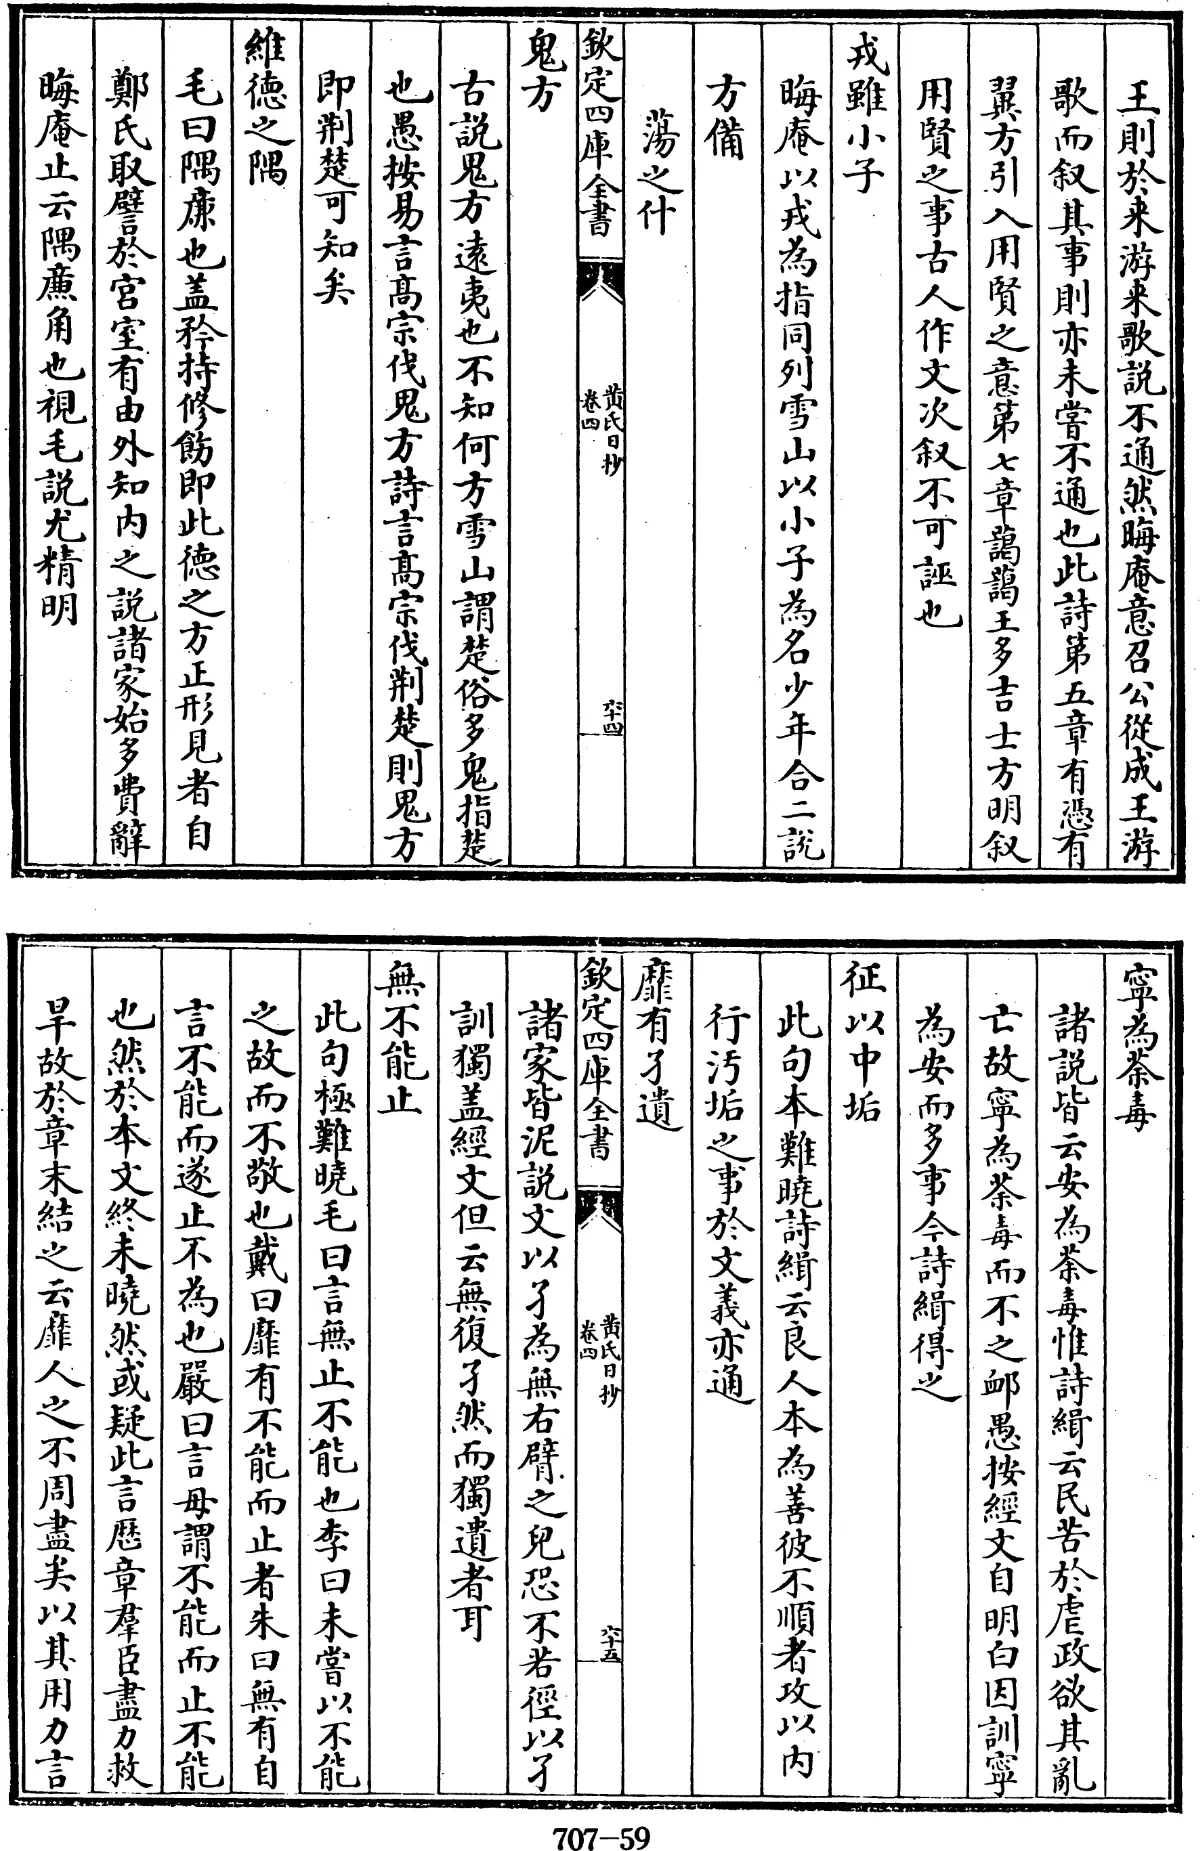 王則於来游来歌説不通然晦庵意召公從成王游
歌而叙其事則亦未嘗不通也此詩第五章有憑有
翼方引入用賢之意第七章藹藹王多吉士方明叙
用賢之事古人作文次叙不可誣也
戎雖小子
晦庵以戎為指同列雪山以小子為名少年合二説
方備
蕩之什
欽定四庫全書
黄氏日抄
卷四
六十四
鬼方
古説鬼方遠夷也不知何方雪山謂楚俗多鬼指楚
也愚按易言髙宗伐鬼方詩言髙宗伐荆楚則鬼方
即荆楚可知矣
維德之隅
毛曰隅亷也盖矜持修飭即此德之方正形見者自
鄭氏取譬於宫室有由外知内之説諸家始多費辭
晦庵止云隅亷角也視毛説尤精明
寧為荼毒
諸説皆云安為荼毒惟詩緝云民苦於虐政欲其亂
亡故寧為荼毒而不之衈愚按經文自明白因訓寧
為安而多事今詩緝得之
征以中垢
此句本難曉詩緝云良人本為善彼不順者攻以内
行汚垢之事於文義亦通
靡有孑遺
欽定四庫全書
黄氏日抄
卷四
六十五
諸家皆泥説文以孑為無右臂之兒恐不若徑以孑
訓獨盖經文但云無復孑然而獨遺者耳
無不能止
此句極難曉毛曰言無止不能也李曰未嘗以不能
之故而不敬也戴曰靡有不能而止者朱曰無有自
言不能而遂止不為也嚴曰言毋謂不能而止不能
也然於本文終未曉然或疑此言歴章羣臣盡力救
旱故於章末結之云靡人之不周盡矣以其用力言
707-59